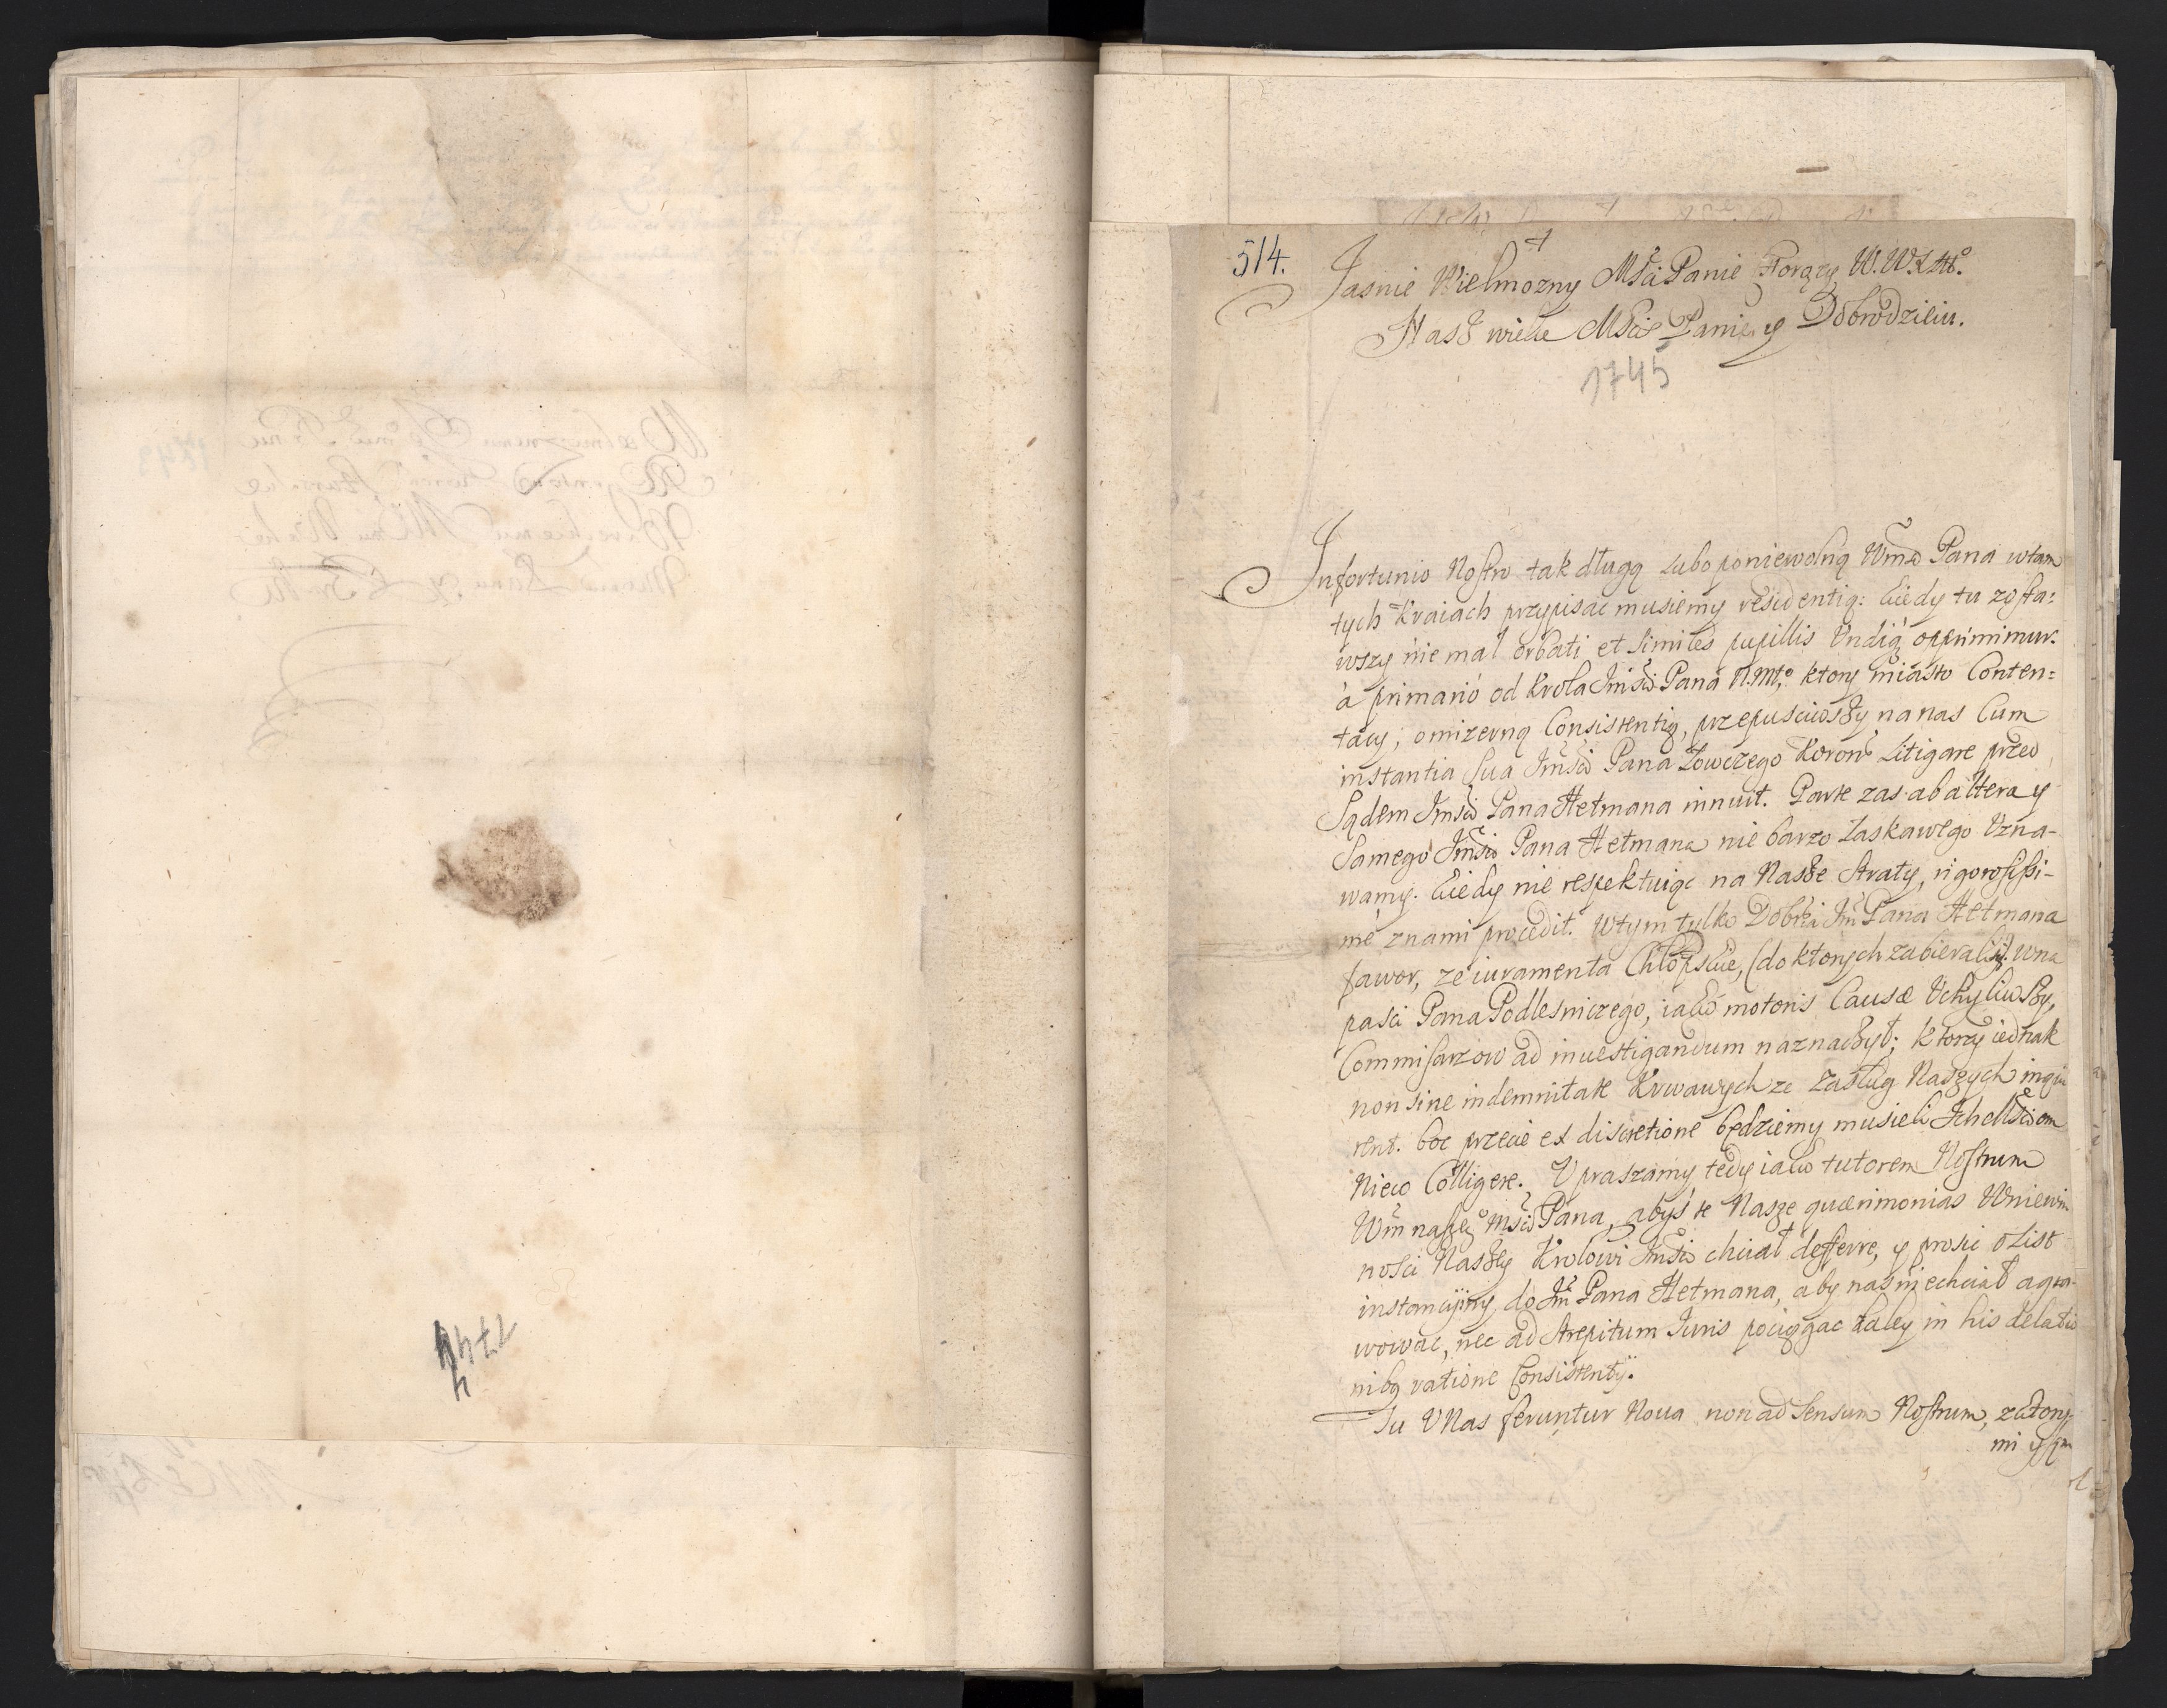 1744
4
514.
Jasnie Wielmozny Mści Panie Horązy W. W. X. Litt.
Nasz wielce Mści Panie y Dobrodzieiu.
1745
Infortunio Nostro tak długą lubo poniewolną Wmści Pana w tam
tych Kraiach przypisac musiemy residentią: kiedy tu zosta=
wszy nie mal orbati et similes pupillis Undiq opprimimur.
a primario od Krola Jmści Pana N. Mło ktory miasto Conten=
tacy, o mizerną Consistentią, przepusciwszy na nas Cum
instantia sua Jmści Pana Łowczego Koronn Litigare przed
Sądem Jmści Pana Hetmana innuit. Parte zas ab altera y
Samego Jmści Pana Hetmana nie barzo Łaskawego Uzna-
wamy. Kiedy nie respektuiąc na Nasze Straty, rigorosissi-
me z nami procedit. W tym tylko Dobrki Jm Pana Hetmana
fawor, ze iuramenta Chłopskie, (do ktorych zabierali się w na
pasci Pana Podlesniczego, iako motoris Causæ Uchyliwszy,
Commissarzow ad inuestigandum naznaczył; ktorzy iednak
non sine indemnitate Krwawych ze Zasług Naszych inqui
rent. boc przecie ex discretione będziemy musieli Ichmściom
Nieco Colligere. Upraszamy tedy iako tutorem Nostrum
Wm naszego Mści Pana, abyś te Nasze quærimonias W niewin
nosci Naszey Krolowi Jmści chciał defferre, y prosic o List
instancyiny do Jm Pana Hetmana, aby nas niechciał agra-
wowac, nec ad strepitum Juris pociągac daley in his delatio
nibq ratione Consistentÿ.
Tu U Nas feruntur Noua non ad Sensum Nostrum, z ktory
mi